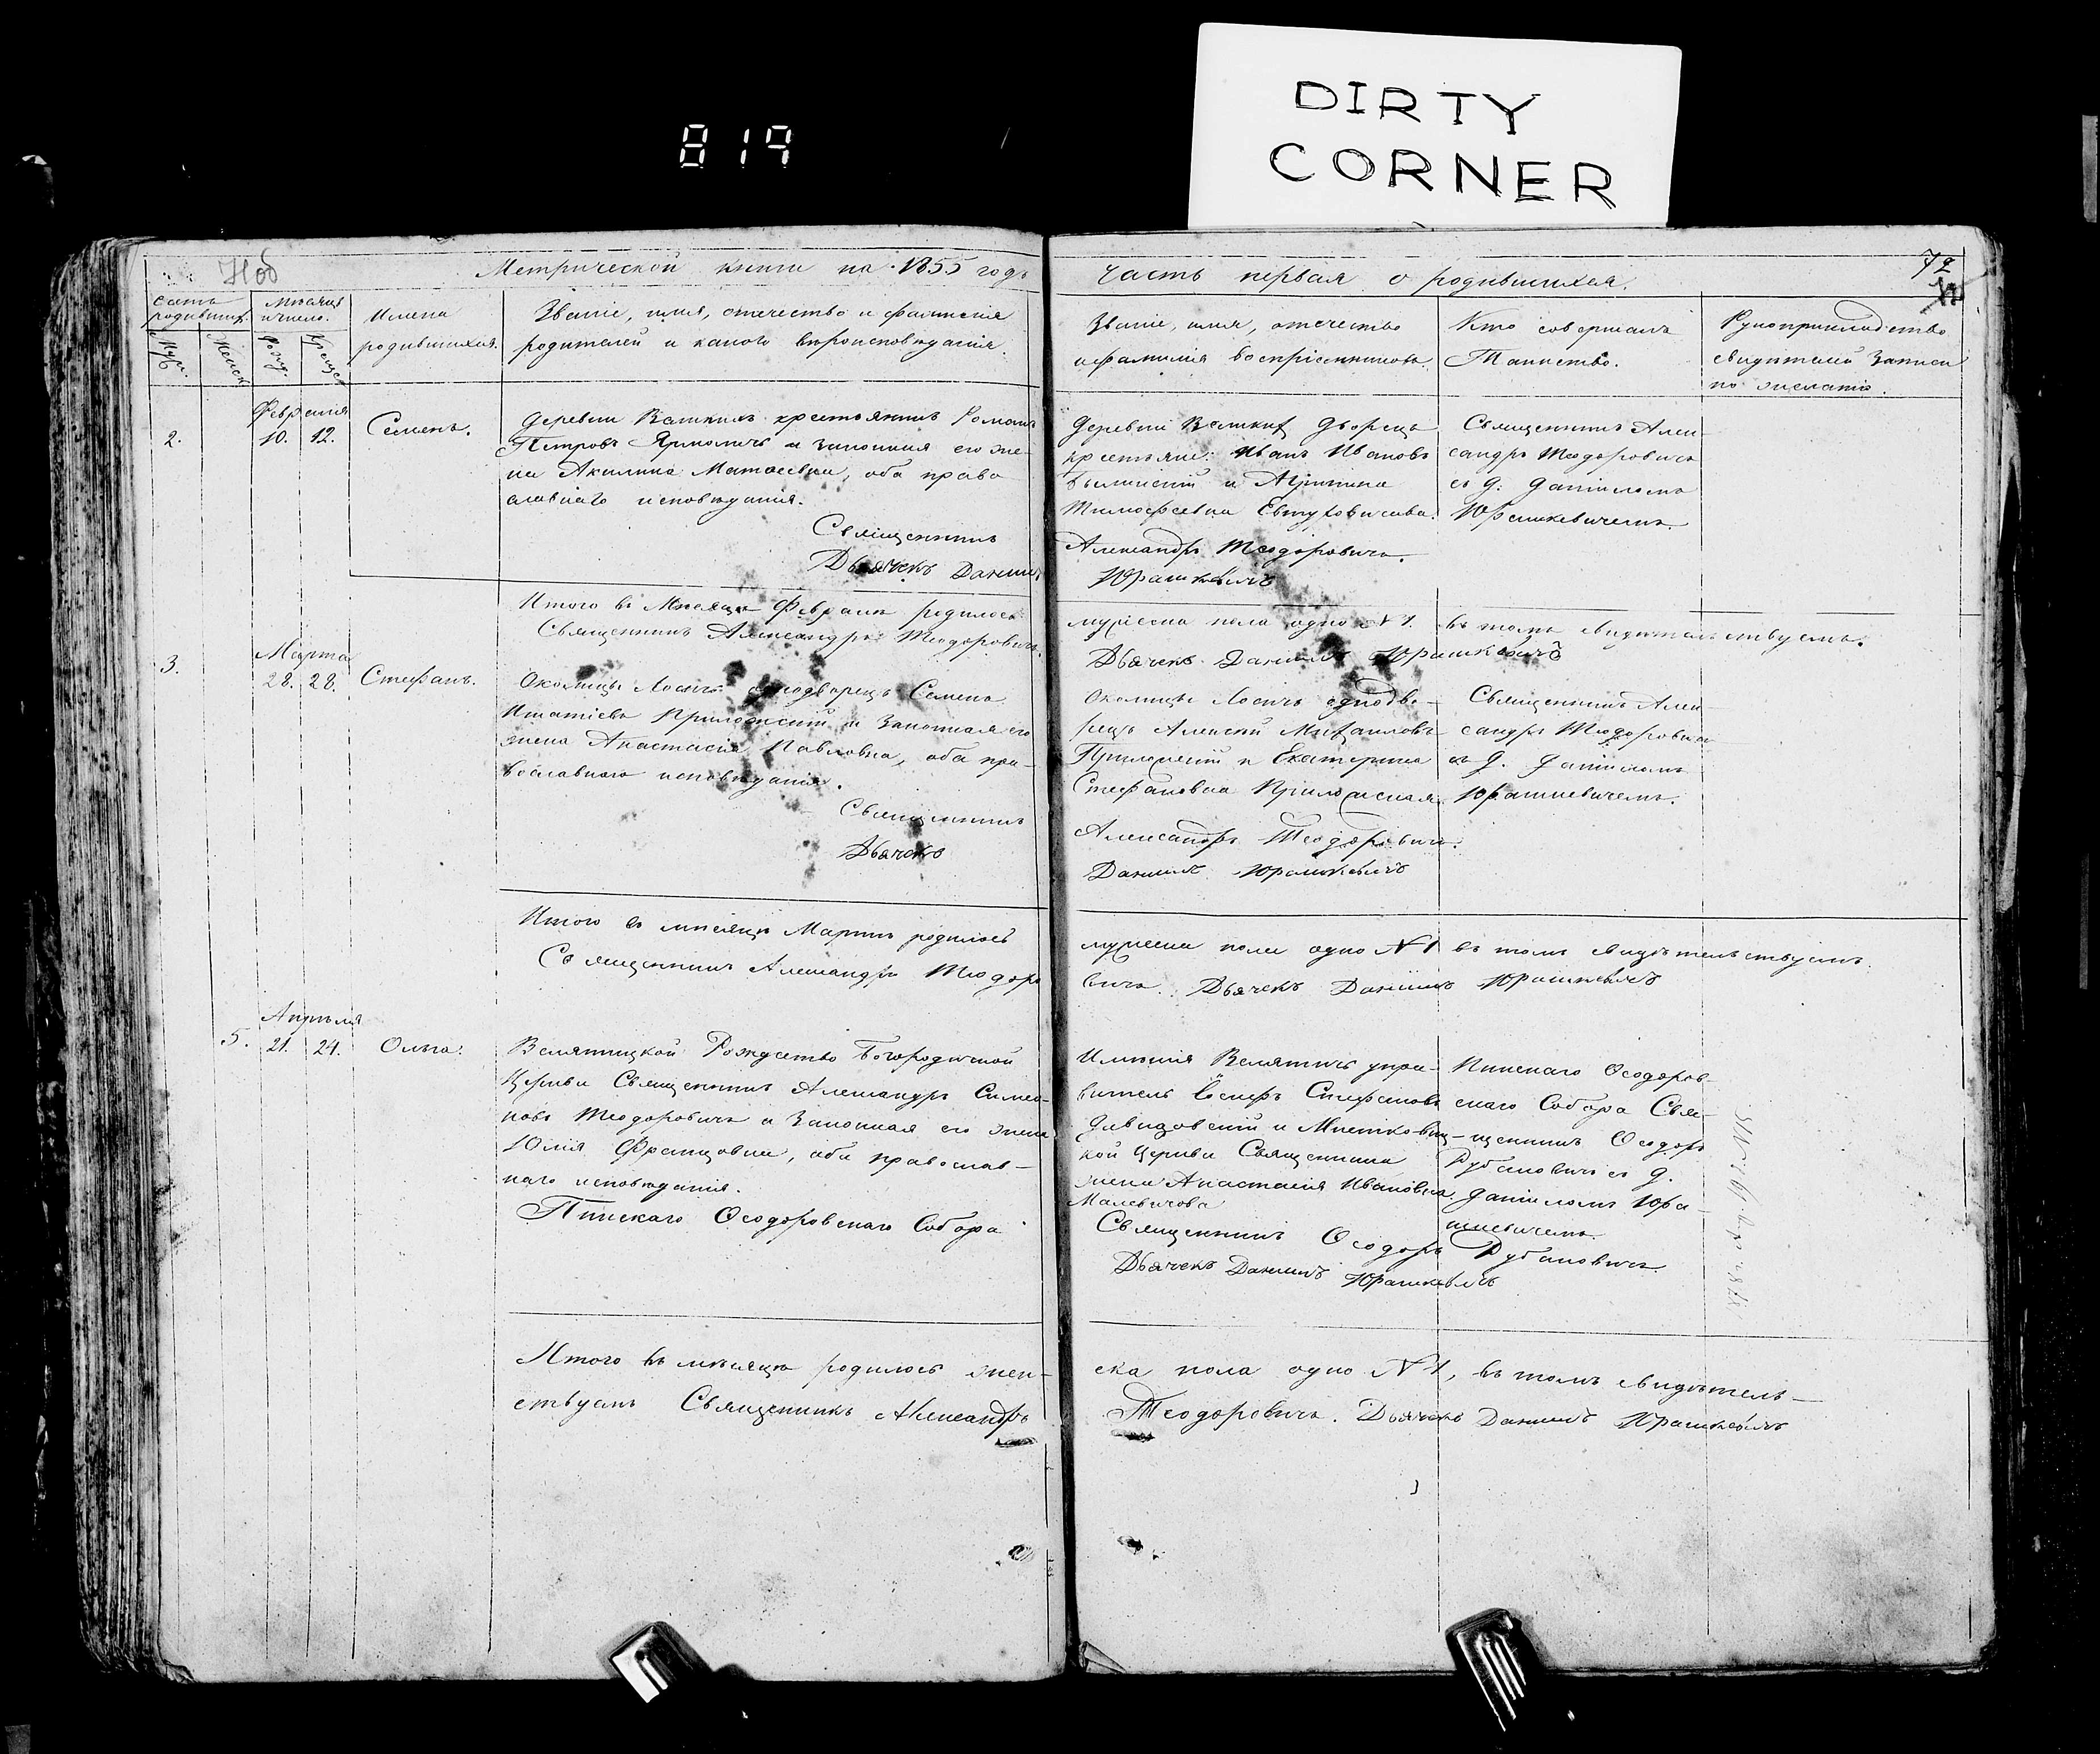 819
DIRTY
CORNER
Метрической книги на 1855 годъ
часть первая о родившихся.
72
Счетъ родившихъ.
Муж.
Женск.
Мѣсяцъ и число.
Рожд.
Крещен.
Имена
родившихся.
Званіе, имя, отечество и фамилія
родителей и какого вѣроисповѣданія.
Званіе, имя, отечество
и фамилія воспріемниковъ.
Кто совершалъ
Таинство.
Рукоприкладство
свидѣтелей записи
по желанію.
Февраля
2. 10. 12. Семенъ.
Деревни крестьянинъ Романъ
Петровъ Ярмоличъ и законная его же-
на Акилина Матвеевна, оба право
славнаго исповѣданія.
Священникъ
Дьячекъ Даніилъ
Деревни Дворецъ
крестьяне: Иванъ Ивановъ
и
Тимофеевна Евтуховичова.
Александръ Теодоровичъ.
Юрашкевичъ
Священникъ Алек-
сандръ Теодоровичъ
съ д: Даніиломъ
Юрашкевичемъ.
Итого въ Мѣсяцѣ Февралѣ родилось
Священникъ Александръ Теодоровичъ.
мужеска пола одно №1. въ томъ свидѣтельствуемъ.
Дьячекъ Даніилъ Юрашкевичъ
Марта
3. 28. 28. Стефанъ.
Околицы однодворецъ Семенъ
Игнатіевъ и Законная его
жена Анастасія Павловна, оба пра-
вославнаго исповѣданія.
Священникъ
Дьячекъ
Околицы однодво-
рецъ Алексѣй Михайловъ
и Екатерина
Стефановна
Александръ Теодоровичъ.
Даніилъ Юрашкевичъ
Священникъ Алек-
сандръ Теодоровичъ
съ д. Даніиломъ
Юрашкевичемъ.
Итого въ мѣсяцѣ Мартѣ родилось
Священникъ Александръ Теодоро
мужеска пола одно №1 въ томъ свидѣтельствуемъ.
вичъ. Дьячекъ Даніилъ Юрашкевичъ
Апрѣля
5. 21. 24. Ольга.
Велятицкой Рождество Богородичной
Церкви Священникъ Александръ Симео-
новъ Теодоровичъ и Законная его жена
Юлія Францовна, оба православ-
наго исповѣданія.
Пинскаго Ѳеодоровскаго Собора
Имѣнія Велятичъ упра-
витель Іосифъ Стефановъ
и
кой Церкви Священника
жена Анастасія Ивановна
Малевичова
Священникъ Ѳеодоръ
Дьячекъ Даніилъ Юрашкевичъ
Пинскаго Ѳеодоров-
скаго Собора Свя-
щенникъ Ѳеодоръ
съ д.
Даніиломъ Юра-
шкевичемъ.
Итого въ мѣсяцѣ родилось жен-
ствуемъ Священникъ Александръ
ска пола одно №1, въ томъ свидѣтель-
Теодоровичъ. Дьячекъ Даніилъ Юрашкевичъ